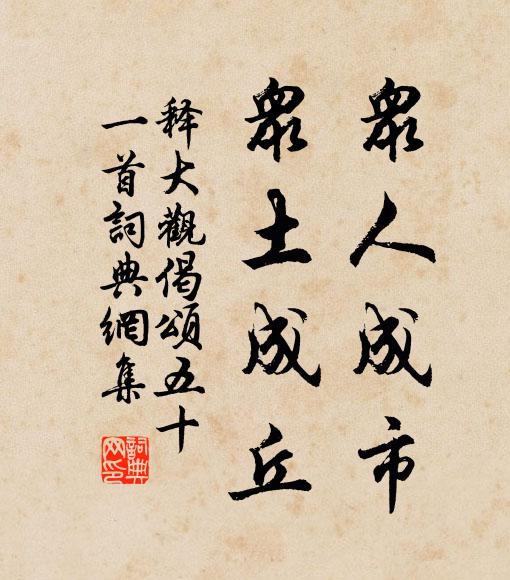 眾人成市
眾土成丘
释大觀偈頌五十
一首詞典網集
詞典
网印